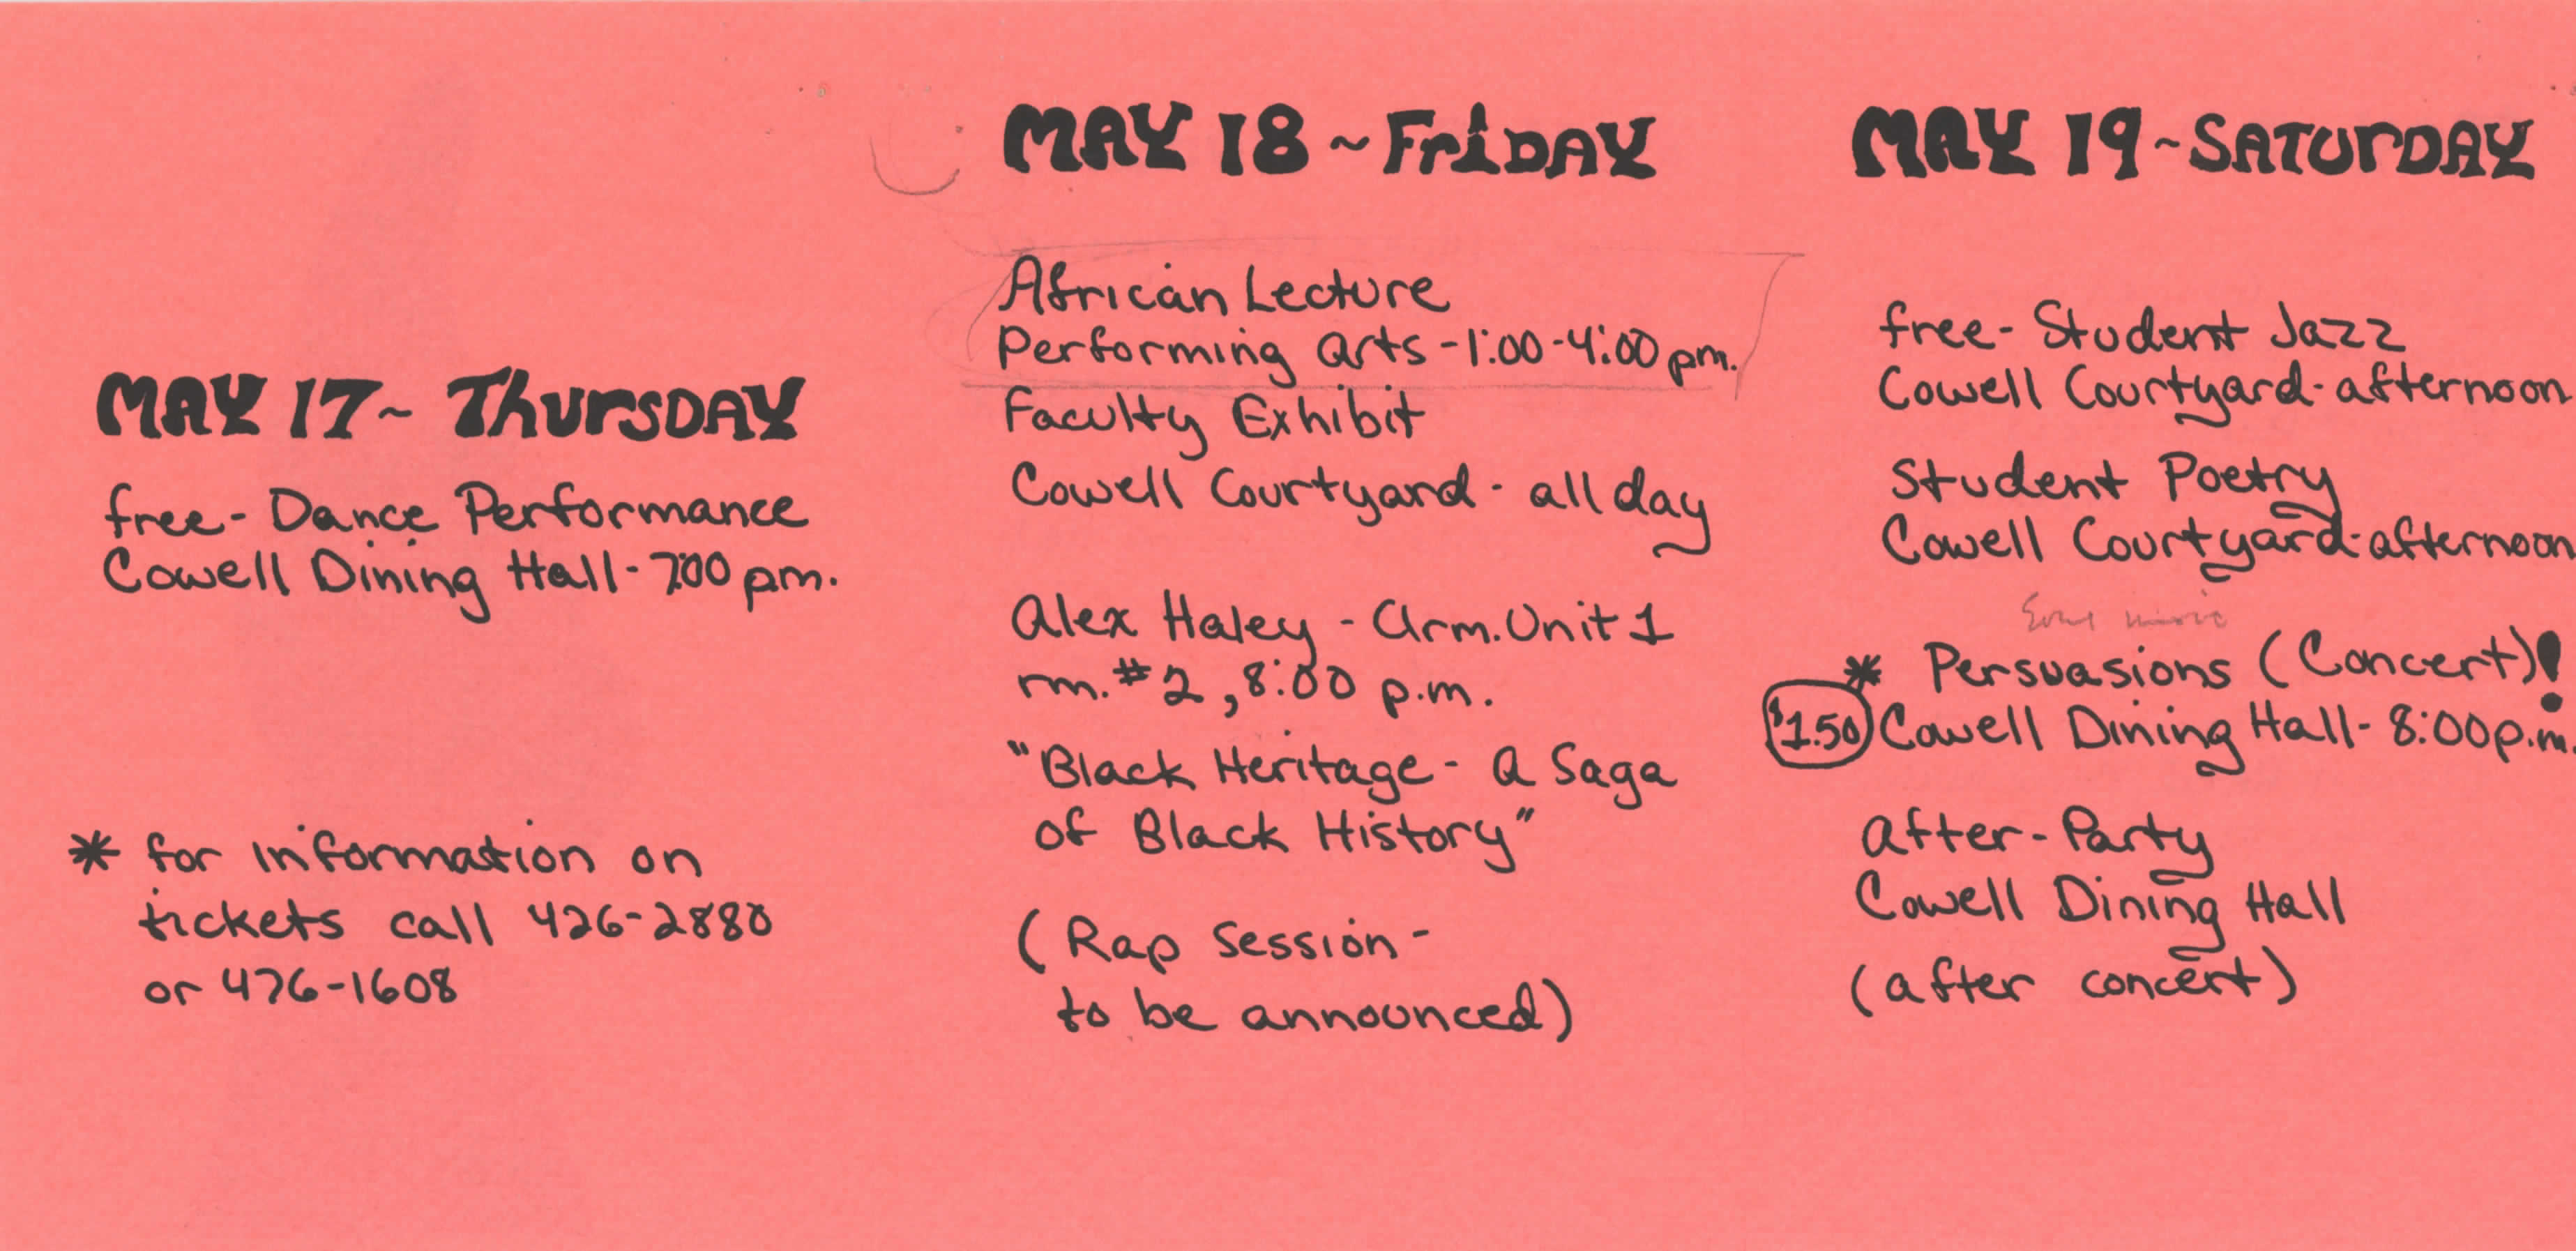 MAY 17~ Thursday
free- Dance Performance
Cowell Dining Hall- 7:00 p.m.
* for information on
tickets call 426-2880
or 476-1608
MAY 18 ~ Friday
African Lecture
Performing arts -1:00-4:00 pm.
Faculty Exhibit
Cowell Courtyard - all day
Alex Haley - Clrm. Unit 1
rm. #2, 8:00 p.m.
"Black Heritage - a Saga
of Black History"
(Rap Session -
to be announced)
MAY 19 ~ Saturday
free- Student Jazz
Cowell Courtyard- afternoon
Student Poetry
Cowell Courtyard- afternoon
Soul music
* Persuasions (Concert)!
$1.50 Cowell Dining Hall- 8:00 p.m.
After-Party
Cowell Dining Hall
(after concert)